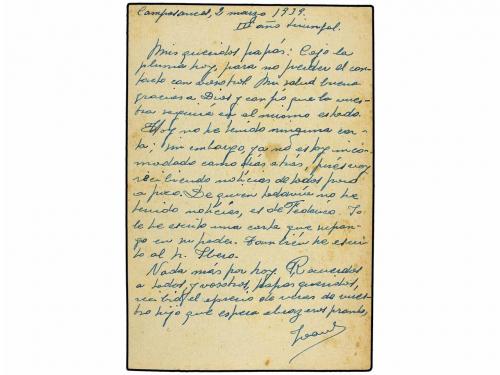 Camposancos, 2 marzo 1939.
III año triunfal.
Mis queridos papás: Cojo la
pluma hoy, para no perder el con-
tacto con vosotros. Mi salud buena
gracias a Dios y confío que la vues-
tra seguirá en el mismo estado.
Hoy no he tenido ninguna car-
ta. Sin embargo, ya no estoy incom-
modado como días atrás, pués voy
recibiendo noticias de todos poco
a poco. De quien todavía no he
tenido noticias, es de Federico. Yo
le he escrito una carta que supon-
go en su poder. También he escri-
to al Sr. Ibero.
Nada más por hoy. Recuerdos
a todos, y vosotros, papas queridos,
recibid el aprecio de veras de vues-
tro hijo que espera abrazaros pronto,
Juan